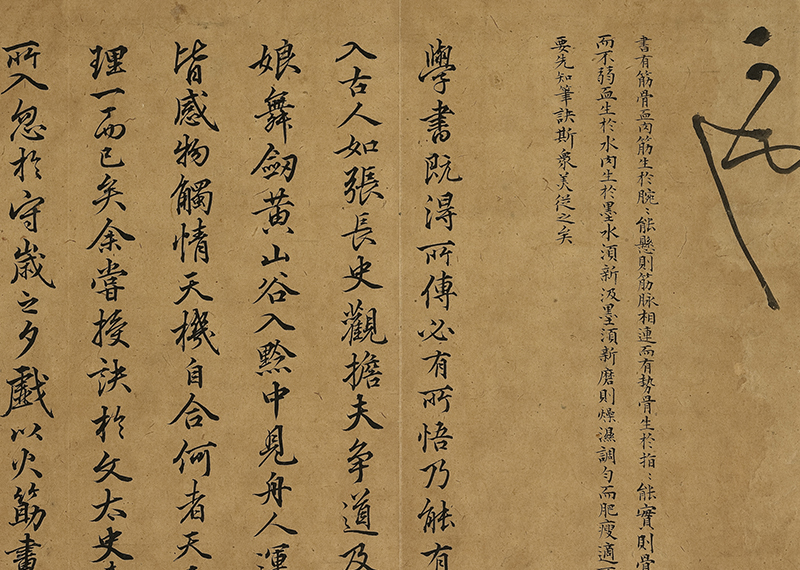 書有筋骨血肉筋生於腕〻能懸則筋脉相連而有勢骨生於指〻能實則骨
而不弱血生於水肉生於墨水須新汲墨須新磨則燥濕調勻而肥瘦適
要先知筆訣斯衆美従之矣
學書既得所傳必有所悟乃能有
入古人如張長史觀擔夫争道及
娘舞劒黄山谷入黔中見舟人運
皆感物觸情天機自合何者天
理一而已矣余嘗授訣於文太史
所入忽於守嵗之夕戲以火筯畫